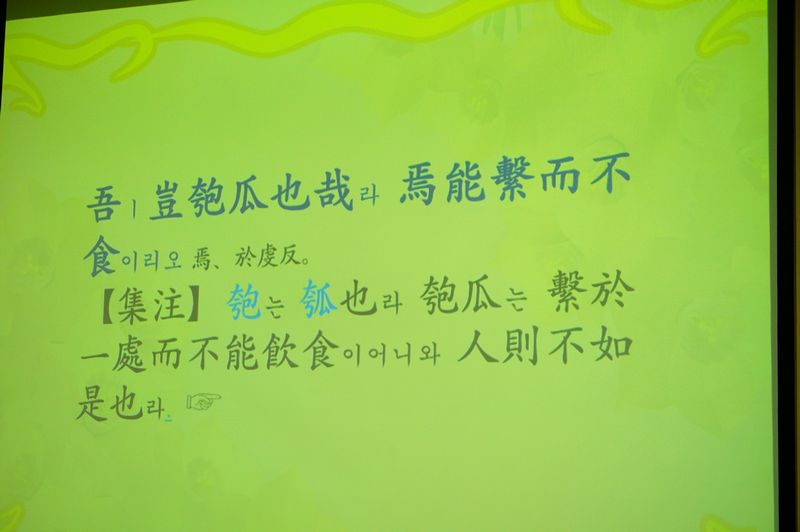 吾ㅣ豈匏瓜也哉라 焉能繫而不
食이리오 焉、於虔反。
【集注】 匏는 瓠也라 匏瓜는 繫於
一處而不能飮食이어니와 人則不如
是也라. ☞